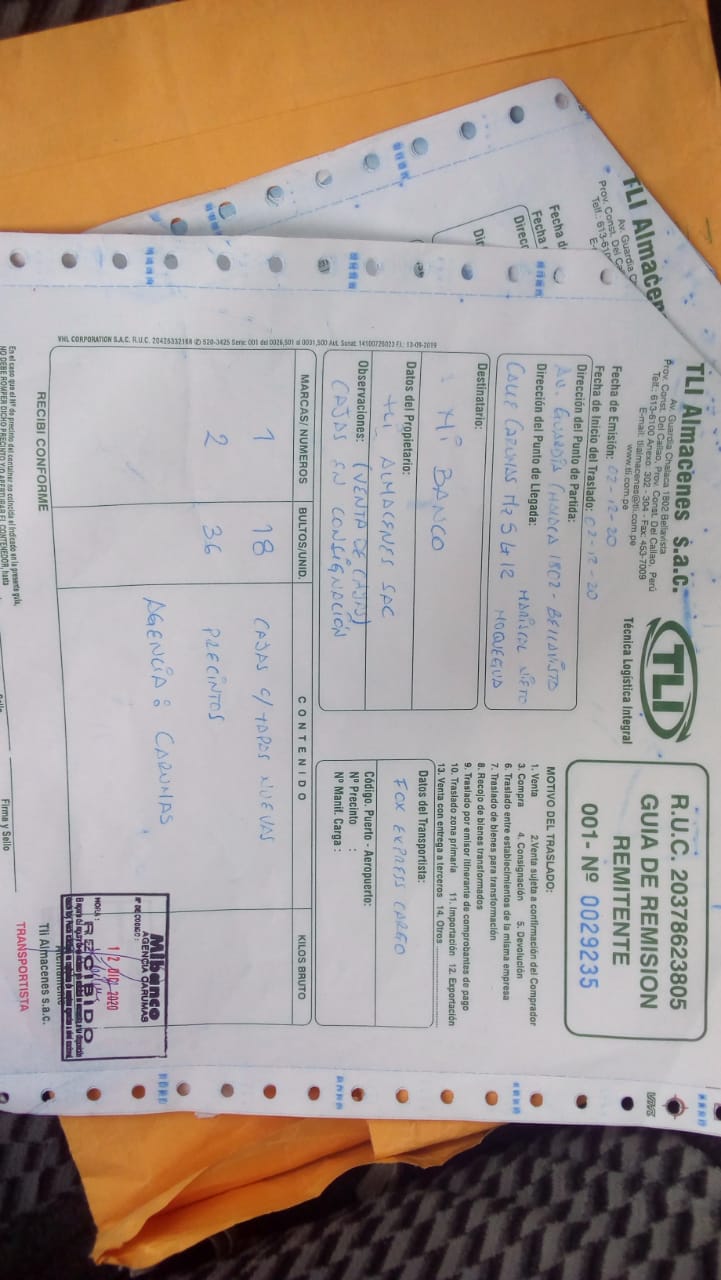 TLI Almacenes s.a.c.
Av. Guardia Chalaca 1802 Bellavista
Prov. Const. Del Callao, Prov. Const. Del Callao, Perú
Telf.: 613-6100 Anexo: 302 - 304 - Fax: 453-7009
E-mail: tlialmacenes@tli.com.pe
www.tli.com.pe
TLI
Técnica Logística Integral
R.U.C. 20378623805
GUIA DE REMISION
REMITENTE
001- Nº 0029235
Fecha de Emisión: 02-12-20
Fecha de Inicio del Traslado: 02-12-20
Dirección del Punto de Partida:
AV. GUARDIA CHALACA 1802 - BELLAVISTA
Dirección del Punto de Llegada:
CALLE CARUMAS MZ 5 Lt 12 MARISCAL NIETO
MOQUEGUA
MOTIVO DEL TRASLADO:
1. Venta 2.Venta sujeta a confirmación del Comprador
3. Compra 4. Consignación 5. Devolución
6. Traslado entre establecimientos de la misma empresa
7. Traslado de bienes para transformación
8. Recojo de bienes transformados
9. Traslado por emisor itinerante de comprobantes de pago
10. Traslado zona primaria 11. Importación 12. Exportación
13. Venta con entrega a terceros 14. Otros
Destinatario:
MI BANCO
Datos del Propietario:
TLI ALMACENES SAC
Datos del Transportista:
FOX EXPRESS CARGO
Observaciones: (VENTA DE CAJAS)
CAJAS EN CONSIGNACIÓN
Código. Puerto - Aeropuerto:
Nº Precinto :
Nº Manif. Carga :
MARCAS/ NUMEROS BULTOS/UNID. CONTENIDO KILOS BRUTO
1 18 CAJAS C/ TAPAS NUEVAS
2 36 PRECINTOS
AGENCIA : CARUMAS
Mibanco
AGENCIA CARUMAS
Nº DE CODIGO:
12 DIC 2020
HORA:
RECIBIDO
VHL CORPORATION S.A.C. R.U.C.
RECIBI CONFORME
Firma y Sello
Tli Almacenes s.a.c.
TRANSPORTISTA
TLI Almacen
Av. Guardia C
Prov. Const. Del C
Telf.: 613-61
Fecha d
Fecha
Direcc
Dir